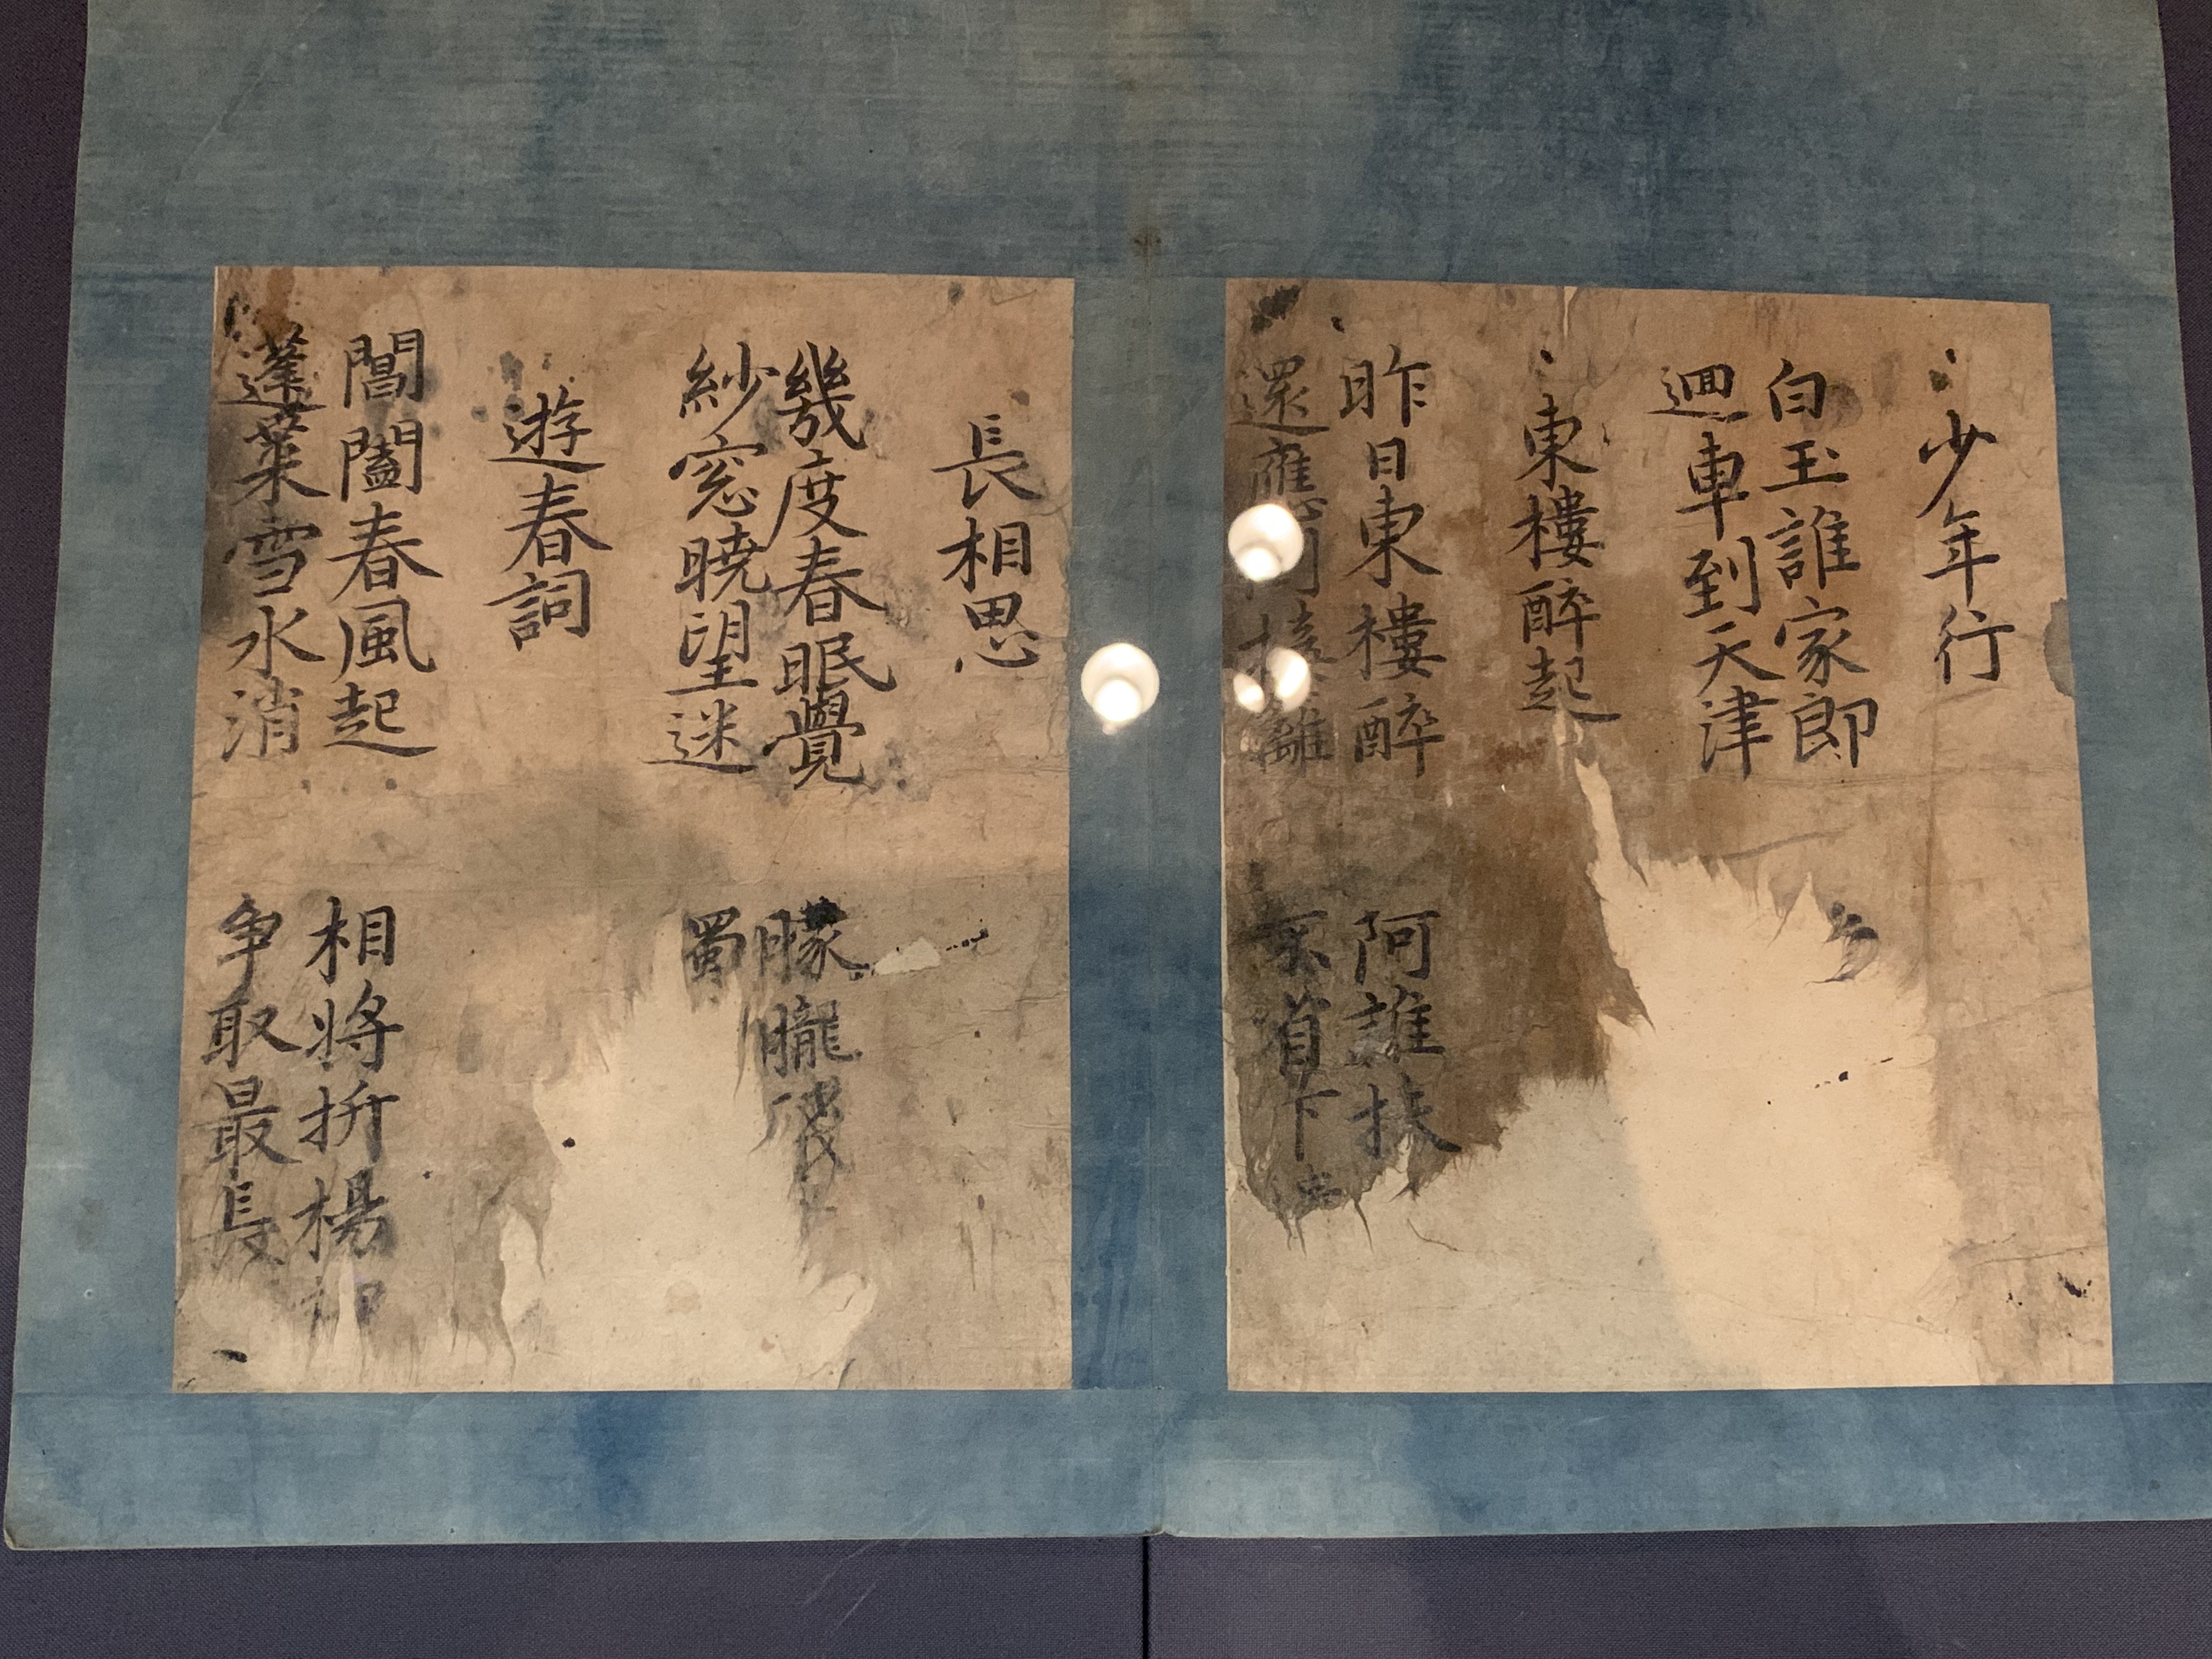 少年行
白玉誰家郎
迴車到天津
東樓醉起
昨日東樓醉 阿誰扶
還應 接離
長相思
幾度春眠覺 朦朧殘
紗窓曉望迷 蜀
遊春詞
閶闔春風起 相將折楊
蓬萊雪水消 争取最長